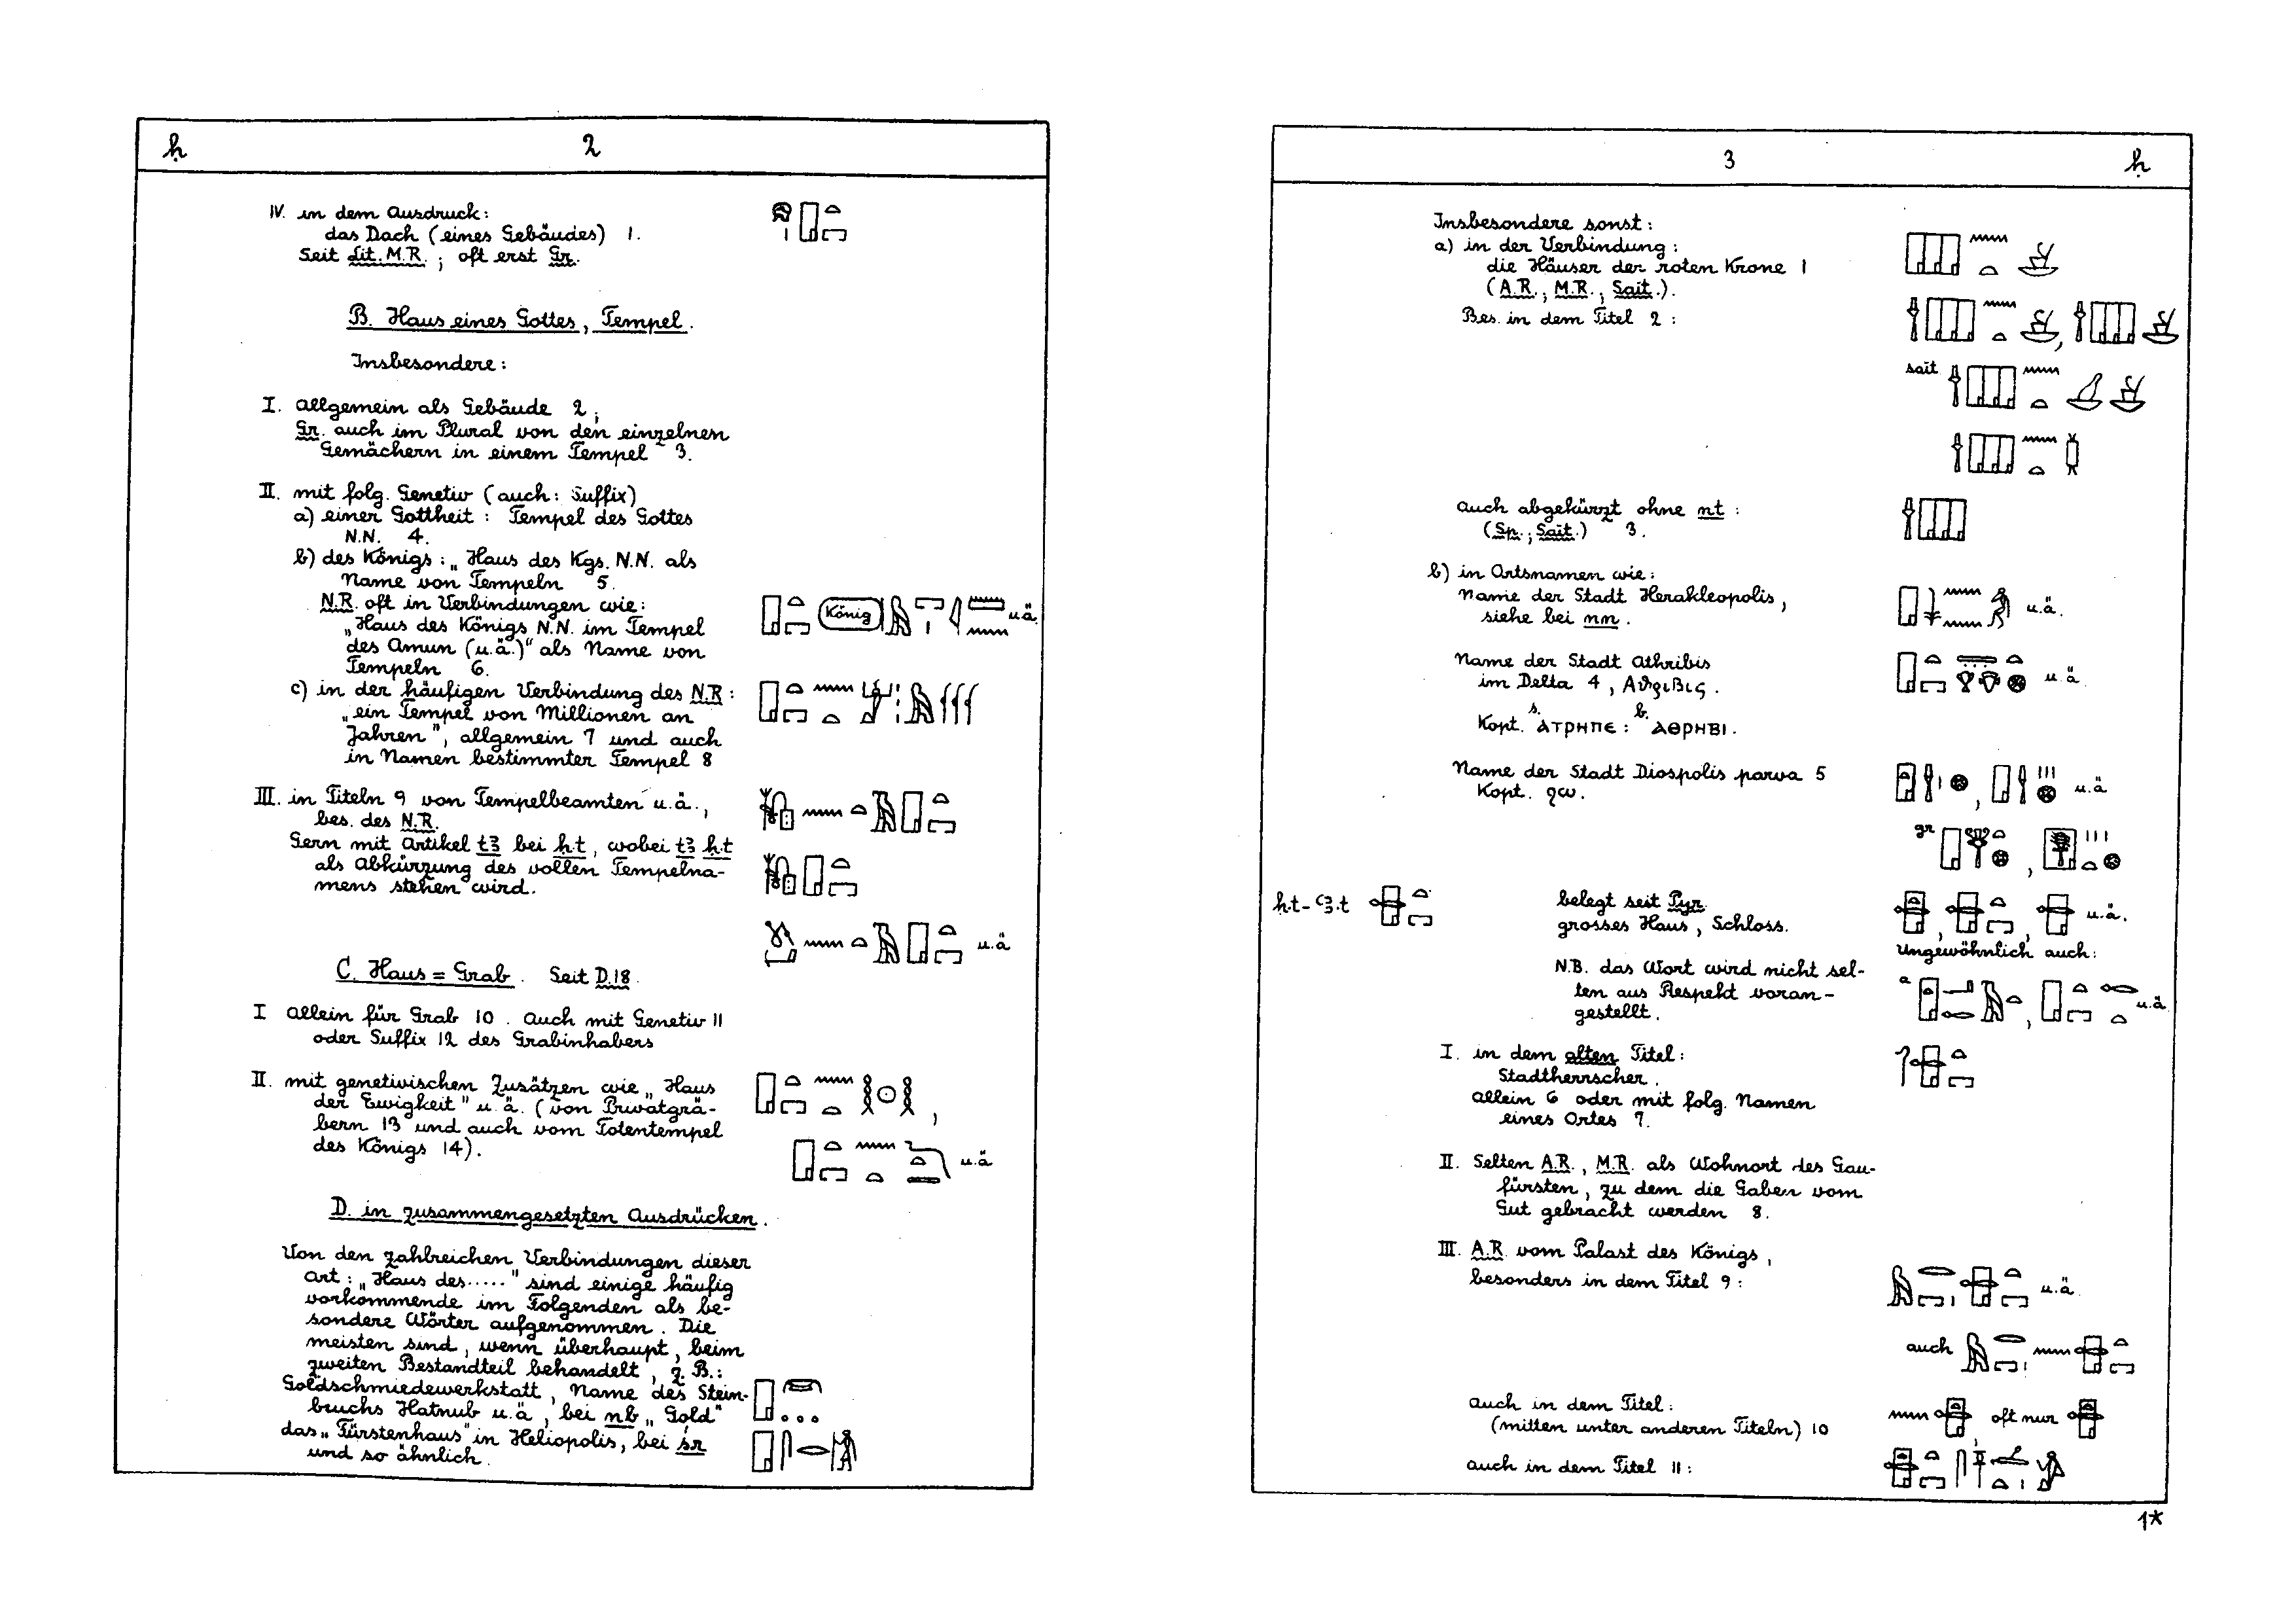 ḥ 2
IV. in dem Ausdruck:
das Dach (eines Gebäudes) 1.
Seit Lit. M.R.; oft erst Gr.
B. Haus eines Gottes, Tempel.
Insbesondere:
I. Allgemein als Gebäude 2;
Gr. auch im Plural von den einzelnen
Gemächern in einem Tempel 3.
II. mit folg. Genetiv (auch: Suffix)
a) einer Gottheit: Tempel des Gottes
N.N. 4.
b) des Königs: „Haus des Kgs. N.N. als
Name von Tempeln 5.
N.R. oft in Verbindungen wie:
König u.ä.
„Haus des Königs N.N. im Tempel
des Amun (u.ä.)" als Name von
Tempeln 6.
c) in der häufigen Verbindung des N.R:
„ein Tempel von Millionen an
Jahren", allgemein 7 und auch
in Namen bestimmter Tempel 8
III. in Titeln 9 von Tempelbeamten u.ä.,
bes. des N.R.
Gern mit Artikel tꜣ bei ḥ.t, wobei tꜣ ḥ.t
als Abkürzung des vollen Tempelna-
mens stehen wird.
u.ä
C. Haus = Grab. Seit D.18.
I allein für Grab 10. Auch mit Genetiv 11
oder Suffix 12 des Grabinhabers
II. mit genetivischen Zusätzen wie „Haus
der Ewigkeit" u.ä. (von Privatgrä-
bern 13 und auch vom Totentempel
des Königs 14).
u.ä
D. in zusammengesetzten Ausdrücken.
Von den zahlreichen Verbindungen dieser
Art: „Haus des....." sind einige häufig
vorkommende im Folgenden als be-
sondere Wörter aufgenommen. Die
meisten sind, wenn überhaupt, beim
zweiten Bestandteil behandelt, z.B.:
Goldschmiedewerkstatt, Name des Stein-
bruchs Hatnub u.ä, bei nb „Gold"
das „Fürstenhaus" in Heliopolis, bei śr
und so ähnlich.
3 ḥ
Insbesondere sonst:
a) in der Verbindung:
die Häuser der roten Krone 1
(A.R., M.R., Sait.).
Bes. in dem Titel 2:
sait
auch abgekürzt ohne nt:
(Sp.; Sait.) 3.
b) in Ortsnamen wie:
Name der Stadt Herakleopolis,
siehe bei nn. u.ä.
Name der Stadt Athribis
im Delta 4, Αθριβις. u.ä.
Kopt. s. ⲁⲧⲣⲏⲡⲉ: b. ⲁⲑⲣⲏⲃⲓ.
Name der Stadt Diospolis parva 5
Kopt. ϩⲱ. u.ä
gr
ḥ.t-ꜥꜣ.t belegt seit Pyr.
grosses Haus, Schloss. u.ä.
Ungewöhnlich auch:
N.B. das Wort wird nicht sel-
ten aus Respekt voran-
gestellt.
a u.ä
I. in dem alten Titel:
Stadtherrscher.
allein 6 oder mit folg. Namen
eines Ortes 7.
II. Selten A.R., M.R. als Wohnort des Gau-
fürsten, zu dem die Gaben vom
Gut gebracht werden 8.
III. A.R. vom Palast des Königs,
besonders in dem Titel 9: u.ä.
auch
auch in dem Titel:
(mitten unter anderen Titeln) 10 oft nur
auch in dem Titel 11:
1*